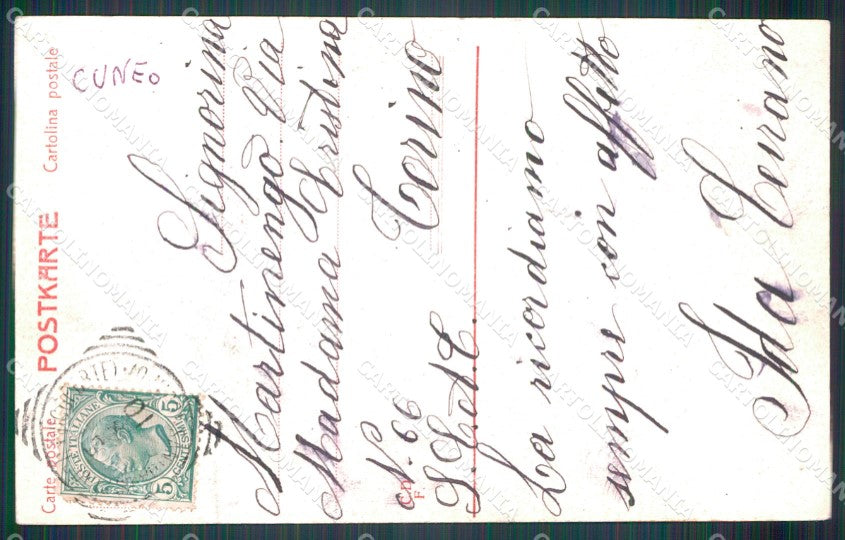 CUNEO
Carte postale POSTKARTE Cartolina postale
POSTE ITALIANE
CENTESIMI
5 5
Signorina
Martinengo Via
Madama Cristina
N. 66 Torino
La ricordiamo
sempre con affitto
Ida
CARTOLINOMANIA